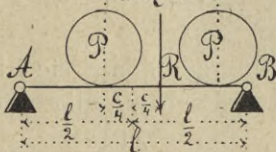 P P
A R B
c/4 c/4
l/2 l/2
l